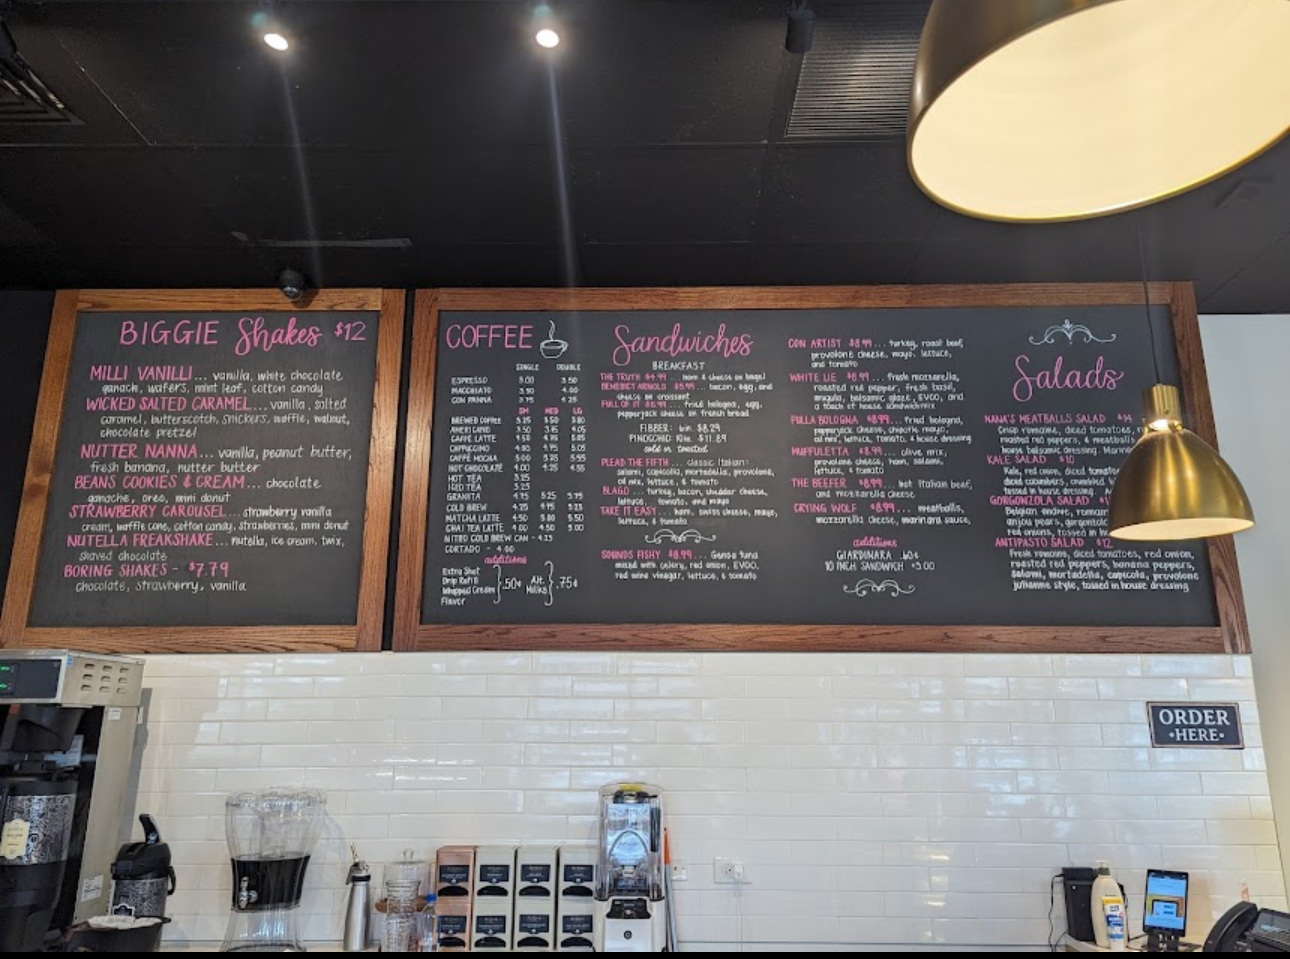 BIGGIE Shakes $12
MILLI VANILLI... vanilla, white chocolate
ganach, wafers, mint leaf, cotton candy
WICKED SALTED CARAMEL... vanilla, salted
caramel, butterscotch, snickers, waffle, walnut,
chocolate pretzel
NUTTER NANNA... vanilla, peanut butter,
fresh banana, nutter butter
BEANS COOKIES & CREAM... chocolate
ganache, oreo, mini donut
STRAWBERRY CAROUSEL... strawberry vanilla
cream, waffle cone, cotton candy, strawberries, mini donut
NUTELLA FREAKSHAKE... nutella, ice cream, twix,
shaved chocolate
BORING SHAKES - $7.79
chocolate, strawberry, vanilla
COFFEE
SINGLE DOUBLE
ESPRESSO 3.00 3.50
MACCHIATO 3.50 4.00
CON PANNA 3.75 4.25
SM MED LG
BREWED COFFEE
AMERICANO
CAFFÈ LATTE
CAPPUCCINO
CAFFÈ MOCHA
HOT CHOCOLATE 4.00 4.25 4.55
HOT TEA 3.25
ICED TEA 3.25
GRANITA 4.75 5.25 5.75
COLD BREW 4.25
MATCHA LATTE 4.50
CHAI TEA LATTE 4.00 4.50 5.00
NITRO COLD BREW CAN - 4.25
CORTADO - 4.00
additions
Extra Shot
Drip Refill
Whipped Cream
Flavor
.50¢
Alt.
Milks
.75¢
Sandwiches
BREAKFAST
THE TRUTH $4.99 ... ham & cheese on bagel
BENEDICT ARNOLD $5.99... bacon, egg, and
cheese on croissant
FULL OF IT $5.99... fried bologna, egg,
pepperjack cheese on french bread
FIBBER: 6in. $8.29
PINOCCHIO: 10in. $11.89
cold or toasted
PLEAD THE FIFTH... classic Italian:
salami, capicola, mortadella, provolone,
oil mix, lettuce, & tomato
BLAGO... turkey, bacon, chedder cheese,
lettuce, tomato, and mayo
TAKE IT EASY... ham, swiss cheese, mayo,
lettuce, & tomato
SOUNDS FISHY $8.99... Genoa tuna
mixed with celery, red onion, EVOO,
red wine vinegar, lettuce, & tomato
CON ARTIST $8.99 ... turkey, roast beef,
provolone cheese, mayo, lettuce,
and tomato
WHITE LIE $8.99 ... fresh mozzarella,
roasted red pepper, fresh basil,
arugula, balsamic glaze, EVOO, and
a touch of house sandwich mix
FULLA BOLOGNA $8.99... fried bologna,
pepperjack cheese, chipotle mayo,
oil mix, lettuce, tomato, & house dressing
MUFFULETTA $8.99... olive mix,
provolone cheese, ham, salami,
lettuce, & tomato
THE BEEFER $8.99... hot Italian beef,
and mozzarella cheese
CRYING WOLF $8.99... meatballs,
mozzarella cheese, marinara sauce,
additions
GIARDINARA .60¢
10 INCH SANDWICH +3.00
Salads
NANA'S MEATBALLS SALAD $14
Crisp romaine, diced tomatoes,
roasted red peppers, & meatballs
house balsamic dressing.
KALE SALAD $10
Kale, red onion, diced tomatoes
diced cucumbers, crumbled
tossed in house dressing.
GORGONZOLA SALAD
Belgian endive, romaine
anjou pears, gorgonzola
red onions, tossed in
ANTIPASTO SALAD $12
Fresh romaine, diced tomatoes, red onion,
roasted red peppers, banana peppers,
salami, mortadella, capicola, provolone
julianne style, tossed in house dressing
ORDER
•HERE•